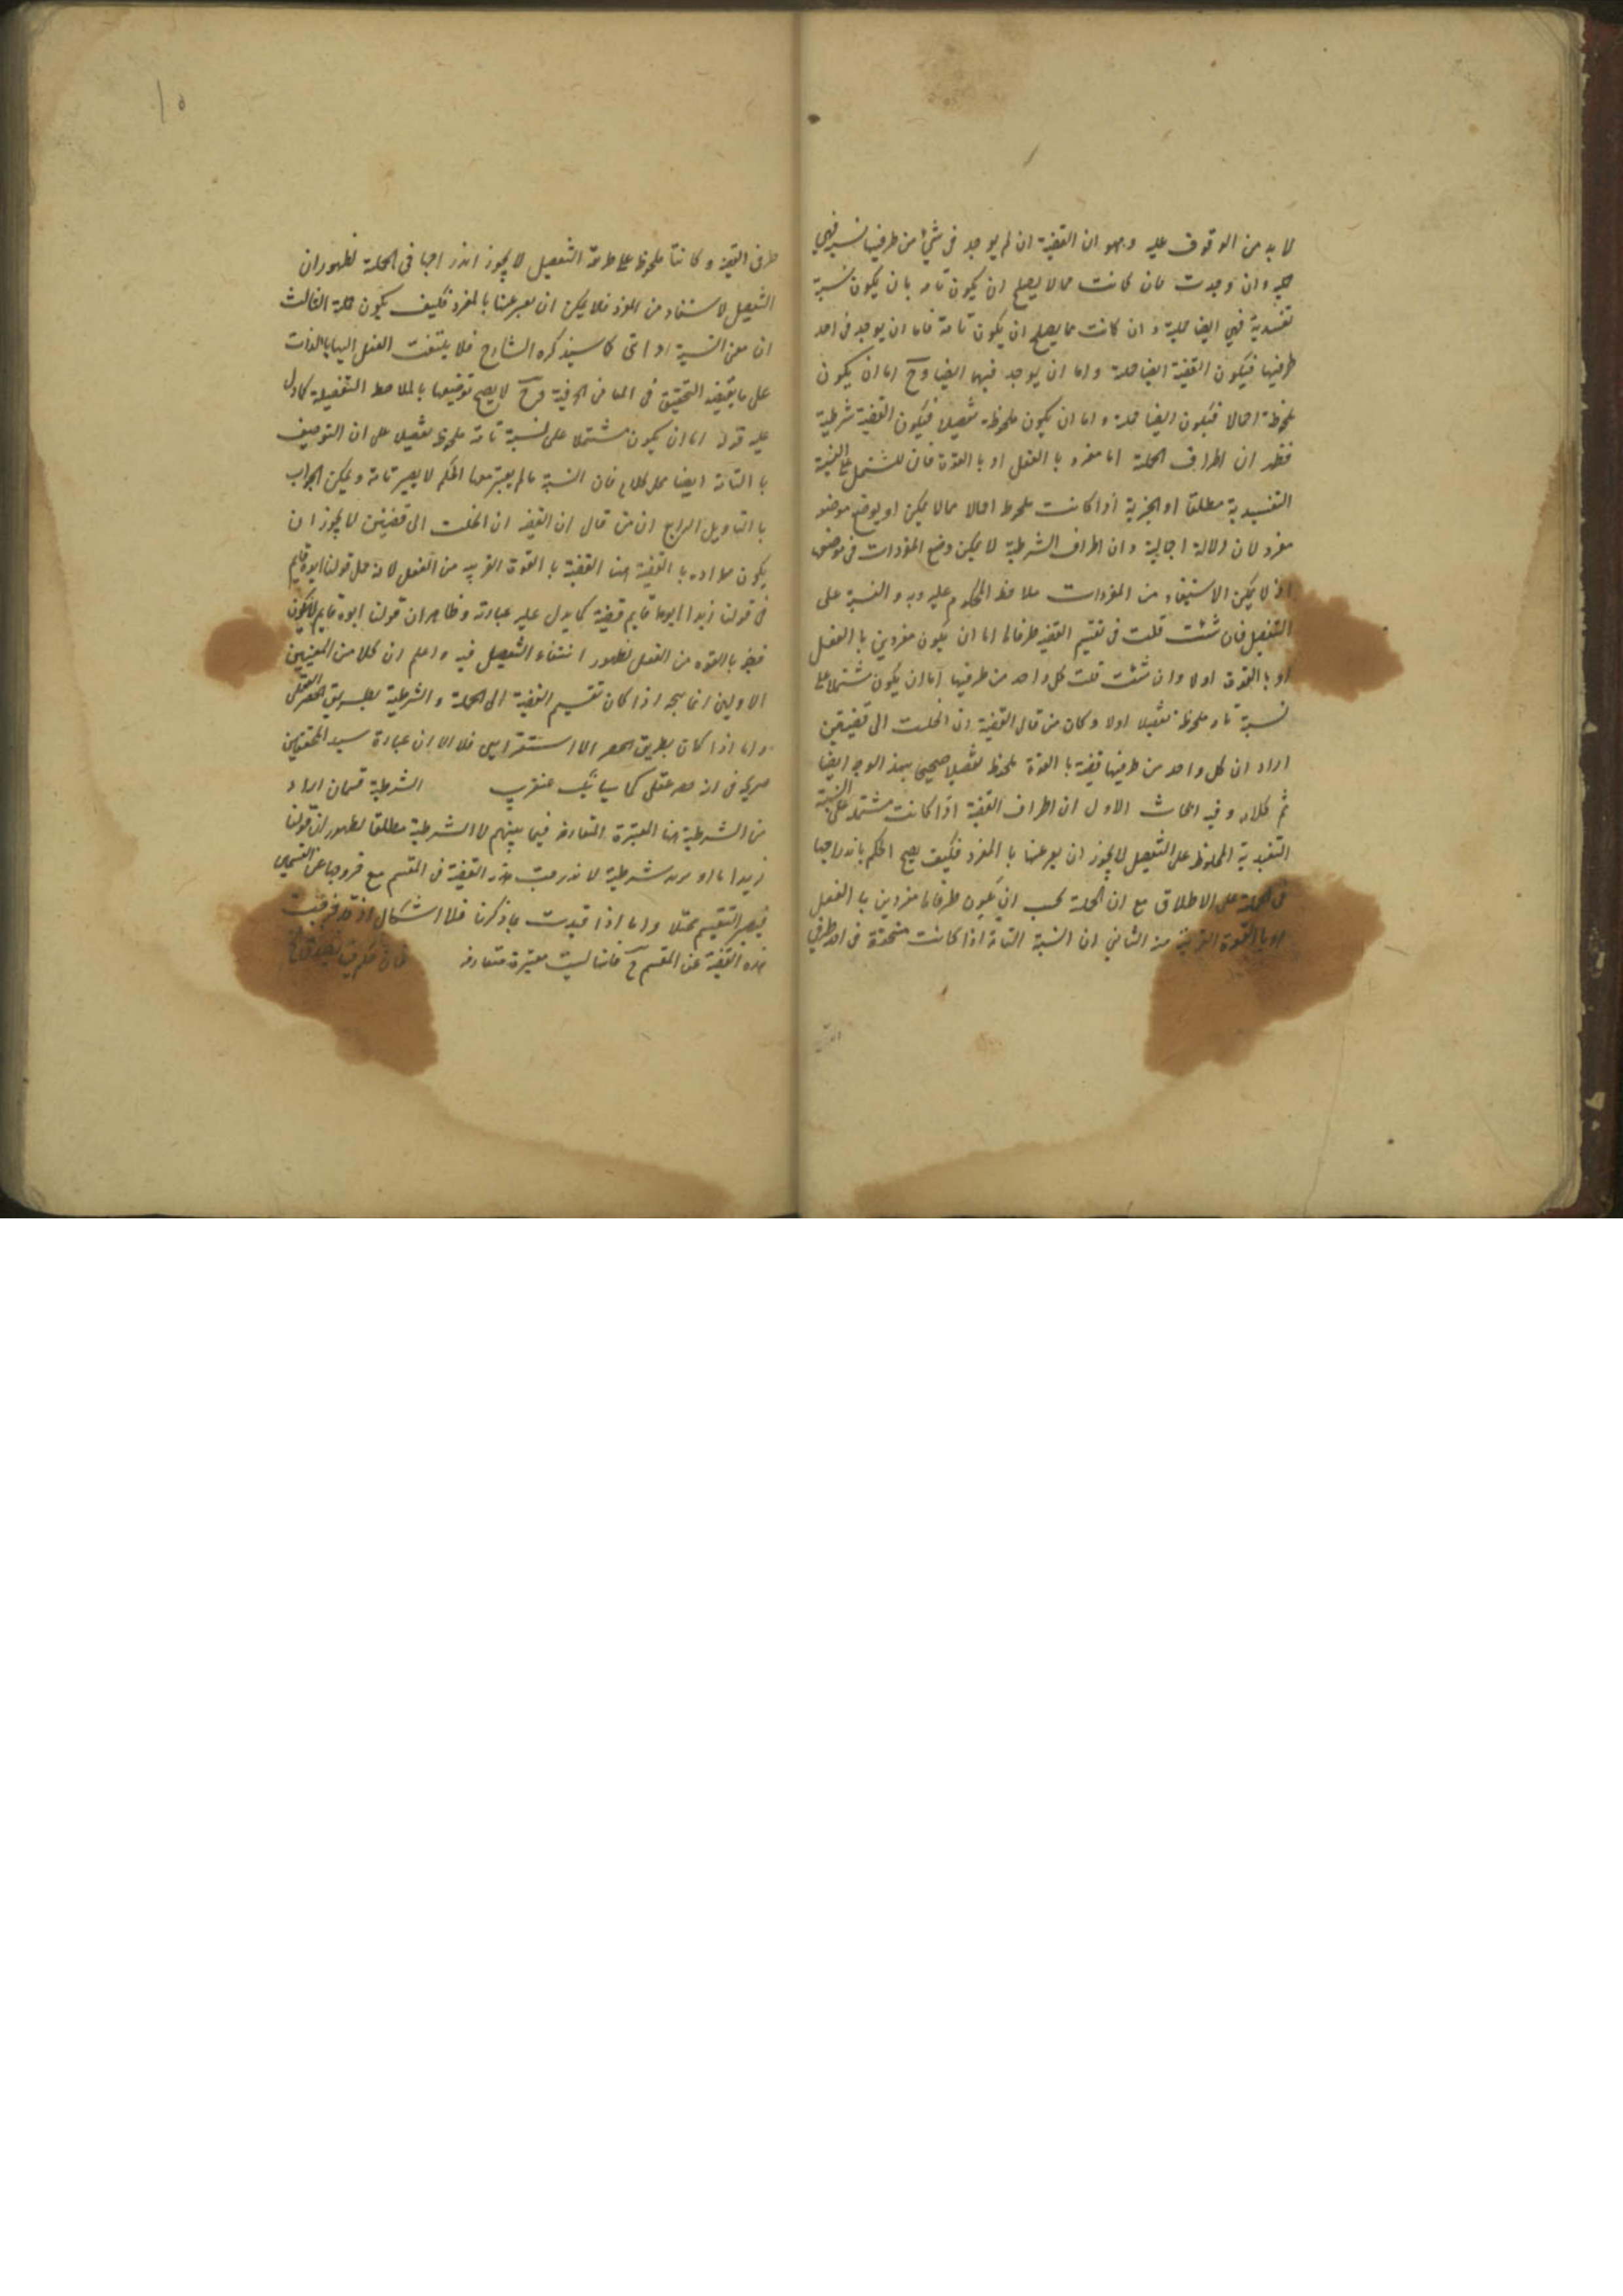 لا بد من الوقوف عليه وهو ان القضية ان لم يوجد في شئ من طرفيها نسبة فهي
حملية وان وجدت فان كانت مما لا يصلح ان يكون تامة بان يكون نسبة
تقييدية فهي ايضا حملية وان كانت مما يصلح ان يكون تامة فاما ان يوجد في احد
طرفيها فيكون القضية ايضا حملية واما ان يوجد فيهما ايضا وح اما ان يكون
ملحوظة اجمالا فيكون ايضا حملية واما ان يكون ملحوظة تفصيلا فيكون القضية شرطية
فظهر ان اطراف الحملية اما مفرد بالفعل او بالقوة فان المشتمل على النسبة
التقييدية مطلقا او الخبرية اذا كانت ملحوظة اجمالا مما يمكن ان يوضع موضعه
مفرد لان دلالته اجمالية وان اطراف الشرطية لا يمكن وضع المفردات في موضعها
اذ لا يمكن ان يستفاد من المفردات ملاحظة المحكوم عليه وبه والنسبة على
التفصيل فان شئت قلت في تقسيم القضية طرفاها اما ان يكون مفردين بالفعل
او بالقوة اولا وان شئت قلت كل واحد من طرفيها اما ان يكون مشتملا على
نسبة تامة ملحوظة تفصيلا اولا وكان من قال القضية ان انحلت الى قضيتين
اراد ان كل واحد من طرفيها قضية بالقوة ملحوظة تفصيلا صحيح بهذا الوجه ايضا
تم كلامه وفيه ابحاث الاول ان اطراف القضية اذا كانت مشتملة على النسبة
التقييدية الملحوظة على التفصيل لا يجوز ان يعبر عنها بالمفرد فكيف يصح الحكم باندراجها
في الحملية على الاطلاق مع ان الحملية يجب ان يكون طرفاها مفردين بالفعل
او بالقوة القريبة منه الثاني ان النسبة التامة اذا كانت متحققة في احد طرفي
١٥
طرفي القضية وكانتا ملحوظة على طريقة التفصيل لا يجوز اندراجها في الحملية لظهور ان
التفصيل لا يستفاد من المفرد فلا يمكن ان يعبر عنها بالمفرد فكيف يكون حملية الثالث
ان معنى النسبة اداتي كما سيذكره الشارح فلا يلتفت العقل اليها بالذات
على ما يقتضيه التحقيق في المعاني الحرفية وح لا يصح توصيفها بالملاحظة التفصيلية كما دل
عليه قوله اما ان يكون مشتملا على نسبة تامة ملحوظة تفصيلا على ان التوصيف
بالتامة ايضا محل كلام فان النسبة ما لم يعتبر معها الحكم لا يصير تامة ويمكن الجواب
بالتاويل الرابع ان من قال ان القضية ان انحلت الى قضيتين لا يجوز ان
يكون مراده بالقضية هنا القضية بالقوة القريبة من الفعل لانه جعل قولنا ابوه قايم
في قولنا زيد ابوه قايم قضية كما يدل عليه عبارته وظاهر ان قولنا ابوه قايم لا يكون
قضية بالقوة من الفعل لظهور انتفاء التفصيل فيه واعلم ان كلا من البحثين
الاولين انما يتجه اذا كان تقسيم القضية الى الحملية والشرطية بطريق الحصر العقلي
واما اذا كان بطريق الحصر الاستقرايي فلا الا ان عبارة سيد المحققين
صريح في انه حصر عقلي كما سيأتيك عنقريب الشرطية قسمان اراد
من الشرطية هنا المعتبرة المتعارفة فيما بينهم لا الشرطية مطلقا لظهور ان قولنا
زيد اما شرطية لاندرجت هذه القضية في المقسم مع خروجها عن القسمين
فيصير التقسيم مختلا واما اذا قيدت بما ذكرنا فلا اشكال اذ قد خرجت
هذه القضية عن المقسم ح فانها ليست معتبرة متعارفة فان حكم فيها